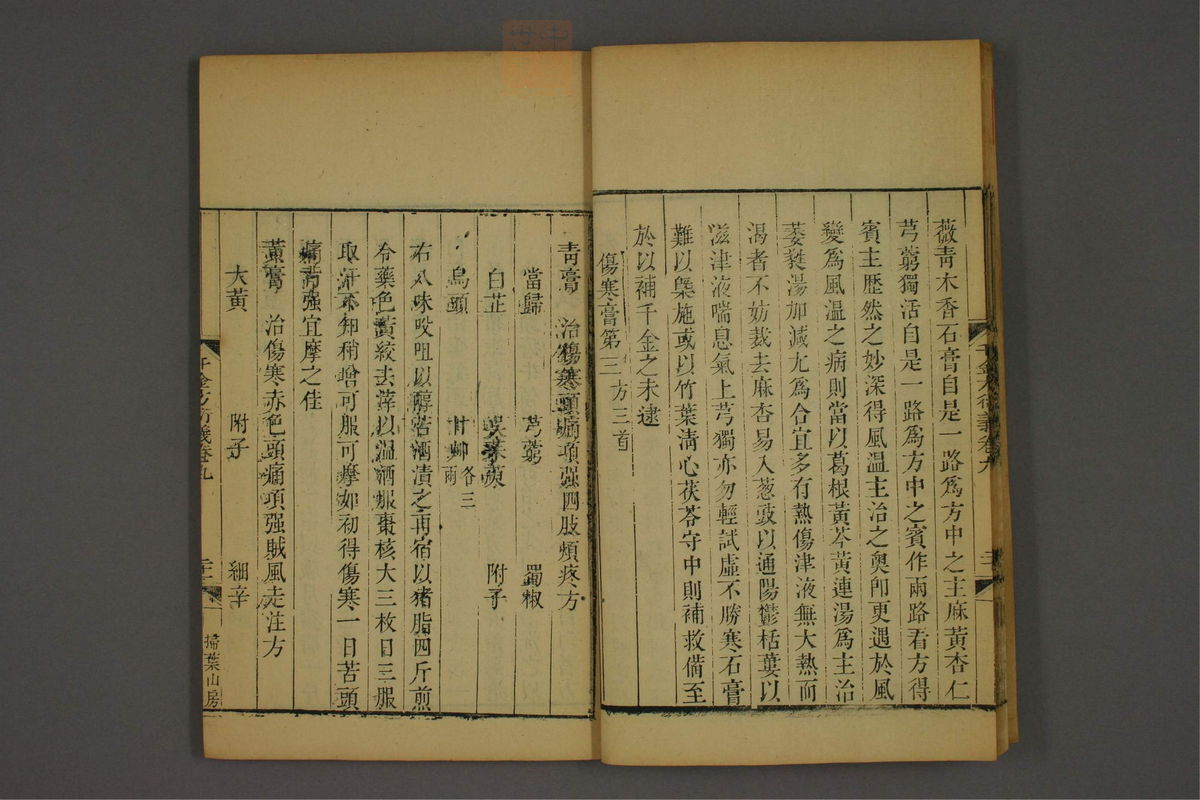 薇靑木香石膏自是一路爲方中之主麻黃杏仁
芎藭獨活自是一路爲方中之賓作兩路看方得
賓主歷然之妙深得風温主治之奧卽更遇於風
變爲風温之病則當以葛根黃芩黃連湯爲主治
萎蕤湯加減尤爲合宜多有熱傷津液無大熱而
渴者不妨裁去麻杏易入葱豉以通陽鬱栝蔞以
滋津液喘息氣上芎獨亦勿輕試虛不勝寒石膏
難以槩施或以竹葉淸心茯苓守中則補救備至
於以補千金之未逮
傷寒膏第三 方三首
靑膏 治傷寒頭痛項强四肢煩疼方
當歸 芎藭 蜀椒
白芷 吳茱萸 附子
烏頭 甘艸 各三兩
右八味㕮咀以醇苦酒漬之再宿以猪脂四斤煎
令藥色黃絞去滓以温酒服棗核大三枚日三服
取汗不知稍增可服可摩如初得傷寒一日苦頭
痛背强宜摩之佳
黃膏 治傷寒赤色頭痛項强賊風走注方
大黃 附子 細辛
千金方衍義卷九
掃葉山房